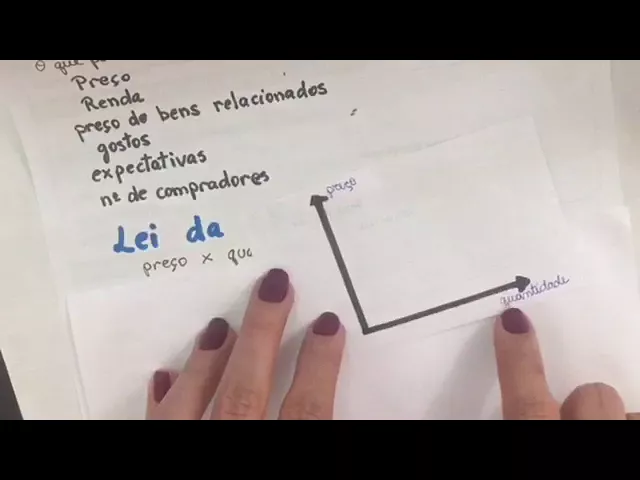 O que
Preço
Renda
preço de bens relacionados
gostos
expectativas
nº de compradores
Lei da
preço x qua
preço
quantidade